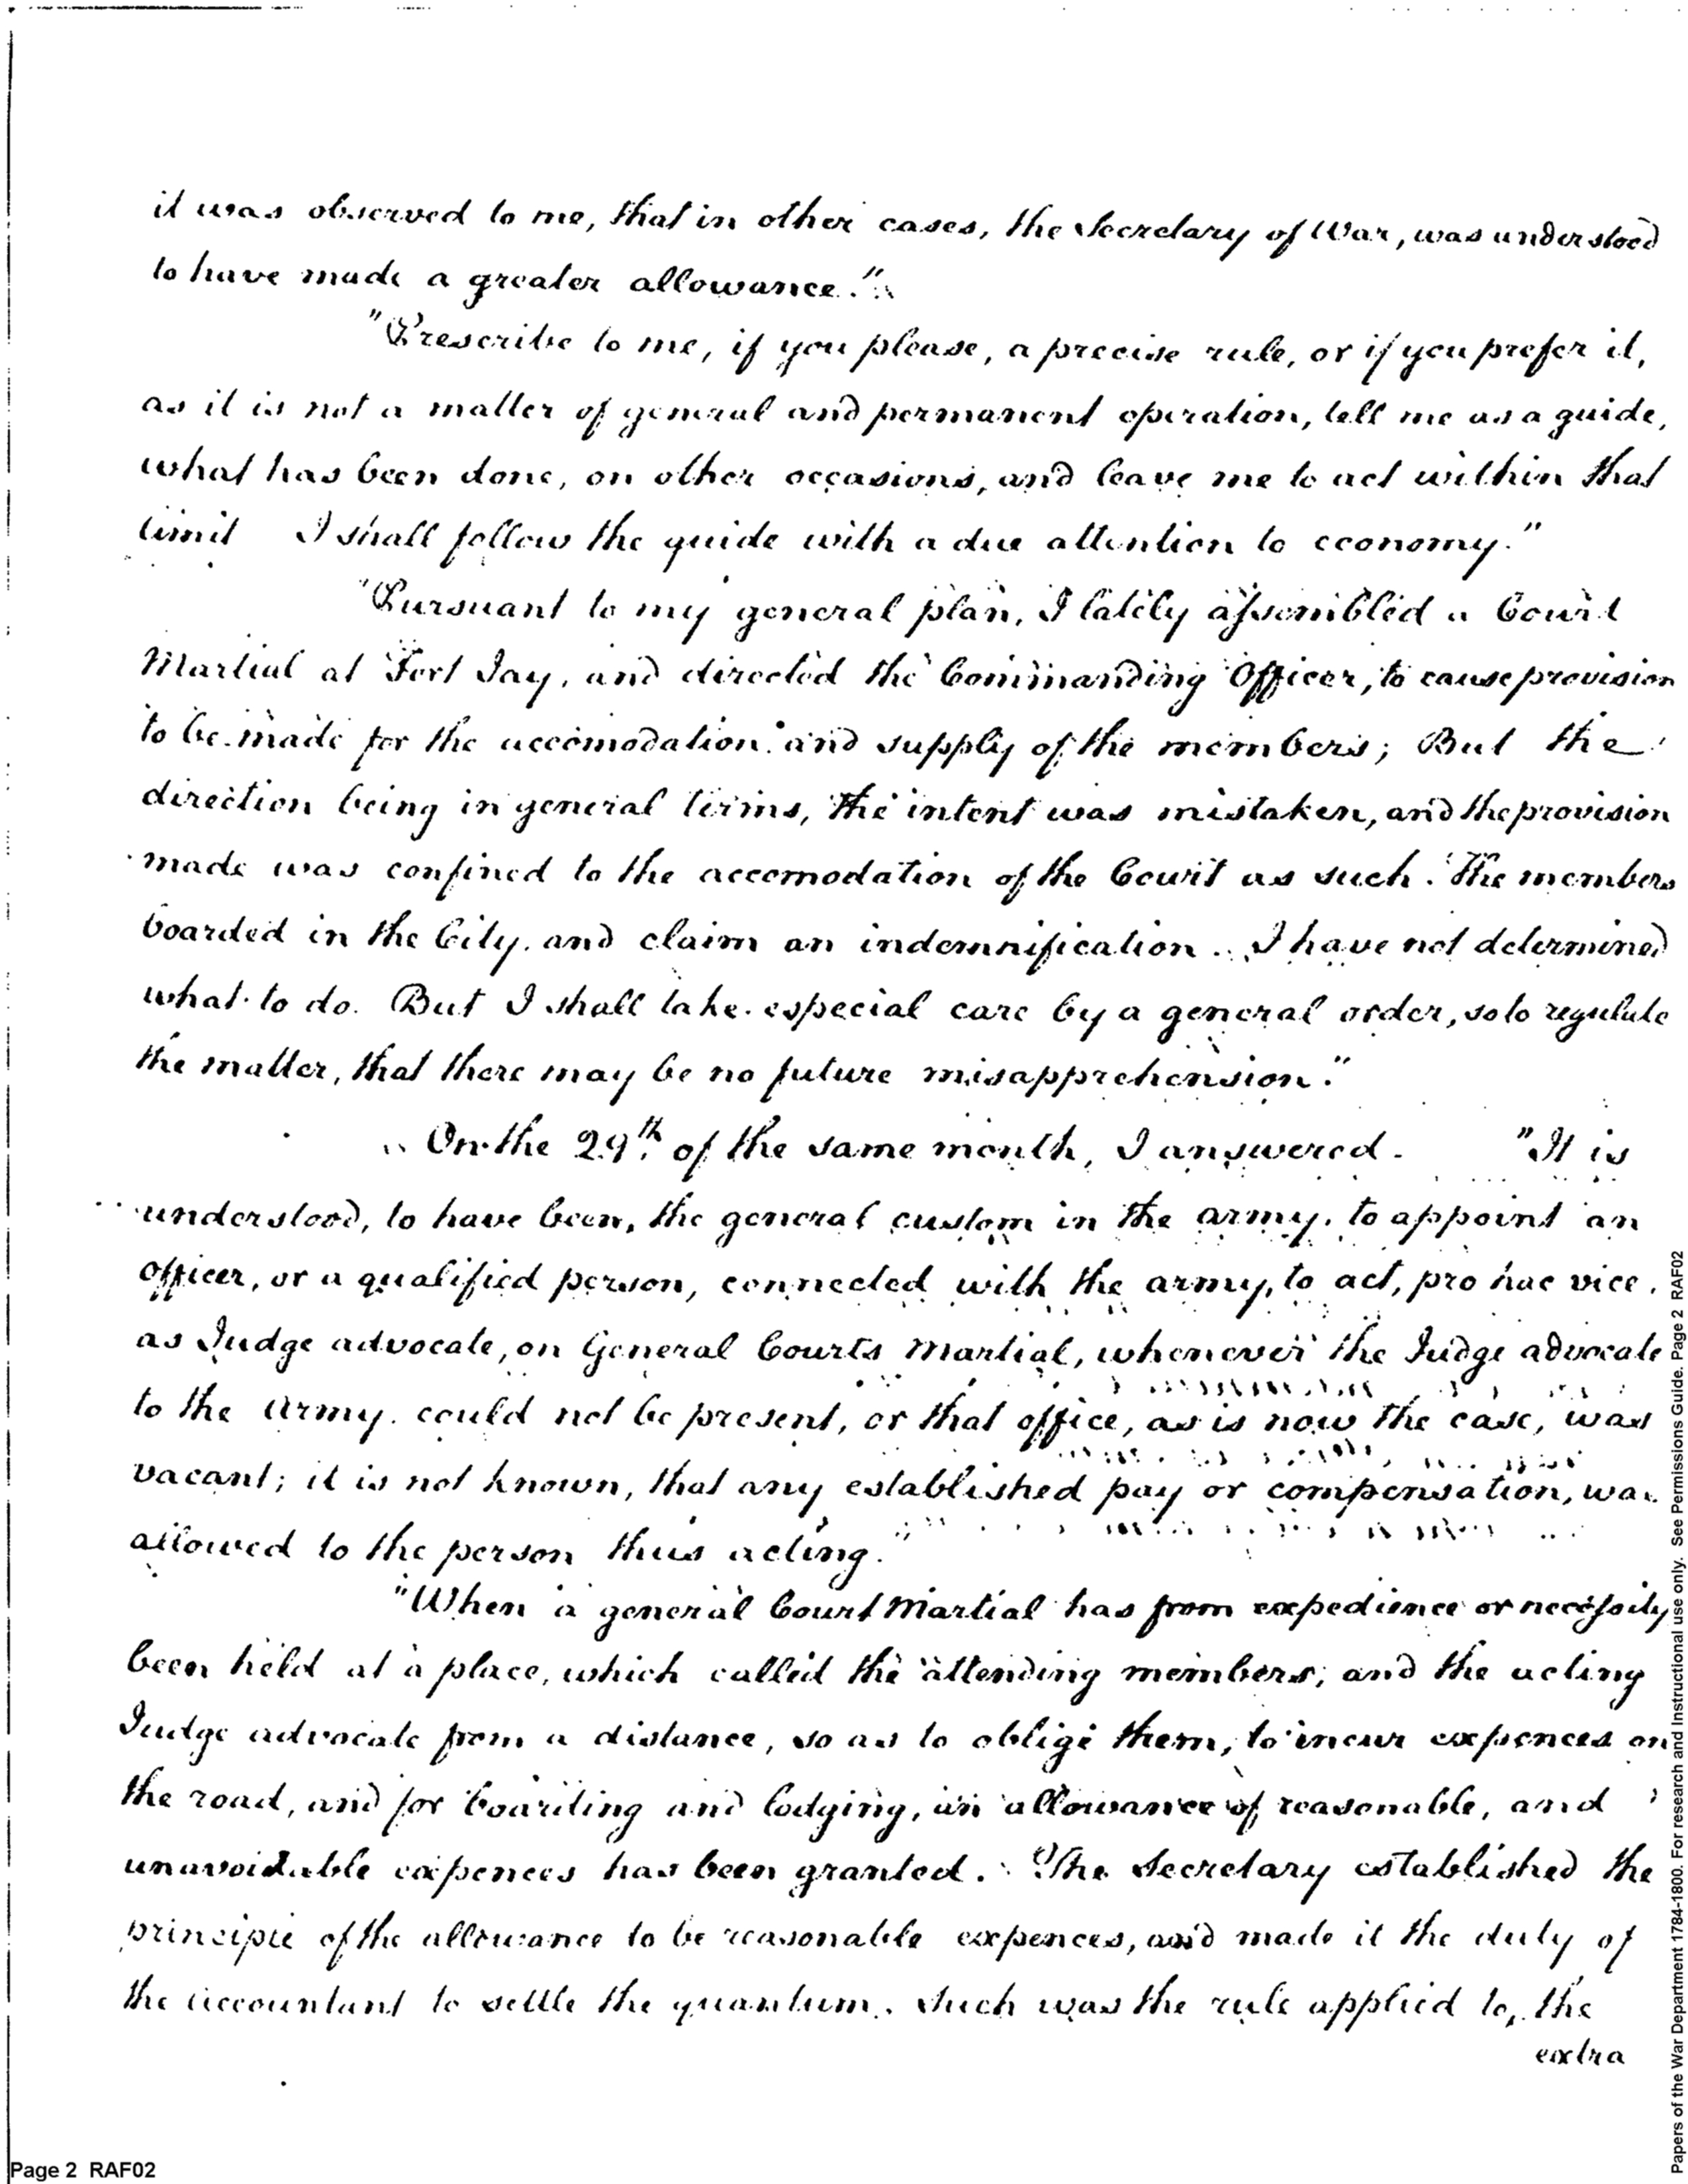 it was observed to me, that in other cases, the Secretary of War, was understood
to have made a greater allowance."
"Prescribe to me, if you please, a precise rule, or if you prefer it,
as it is not a matter of general and permanent operation, tell me as a guide,
what has been done, on other occasions, and leave me to act within that
limit I shall follow the guide with a due attention to economy."
"Pursuant to my general plan, I lately assembled a Court
Martial at Fort Jay, and directed the Commanding Officer, to cause provision
to be made for the accomodation and supply of the members; But the
direction being in general terms, the intent was mistaken, and the provision
made was confined to the accomodation of the Court as such. The members
boarded in the City, and claim an indemnification. I have not determined
what to do. But I shall take especial care by a general order, so to regulate
the matter, that there may be no future misapprehension."
On the 29th. of the same month, I answered. "It is
understood, to have been, the general custom in the army, to appoint an
officer, or a qualified person, connected with the army, to act, pro hac vice,
as Judge advocate, on General Courts Martial, whenever the Judge advocate
to the army. could not be present, or that office, as is now the case, was
vacant; it is not known, that any established pay or compensation, was
allowed to the person thus acting."
"When a general Court Martial has from expedience or necessity
been held at a place, which called the attending members, and the acting
Judge advocate from a distance, so as to oblige them, to incur expences on
the road, and for boarding and lodging, an allowance of reasonable, and
unavoidable expences has been granted. The Secretary established the
principle of the allowance to be reasonable expences, and made it the duty of
the accountant to settle the quantum. Such was the rule applied to, the
extra
Page 2 RAF02
Papers of the War Department 1784-1800. For research and Instructional use only. See Permissions Guide. Page 2 RAF02